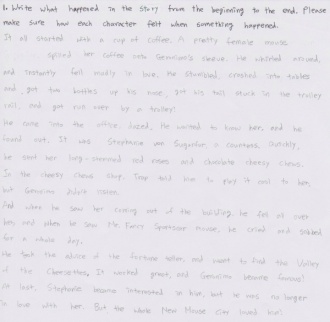 1. Write what happened in the story from the beginning to the end. Please
make sure how each character felt when something happened.
It all started with a cup of coffee. A pretty female mouse
spilled her coffee onto Geronimo's sleeve. He whirled around,
and instantly fell madly in love. He stumbled, crashed into tables
and got two truffles up his nose, got his tail stuck in the trolley
rail, and got run over by a trolley!
He came into the office dazed. He wanted to know her, and he
found out. It was Stephanie von Sugarfur a countess. Quickly,
he sent her long-stemmed red roses and chocolate cheesy chews.
In the cheesy chews shop, Trap told him to play it cool to her,
but Geronimo didn't listen.
And when he saw her coming out of the building, he fell all over
her, and when he saw Mr. Fancy Sportscar Mouse, he cried and sobbed
for a whole day.
He took the advice of the fortune teller, and went to find the Valley
of the Cheesettes. It worked great, and Geronimo became famous!
At last, Stephanie became interested in him, but he was no longer
in love with her. But the whole New Mouse City loved him!